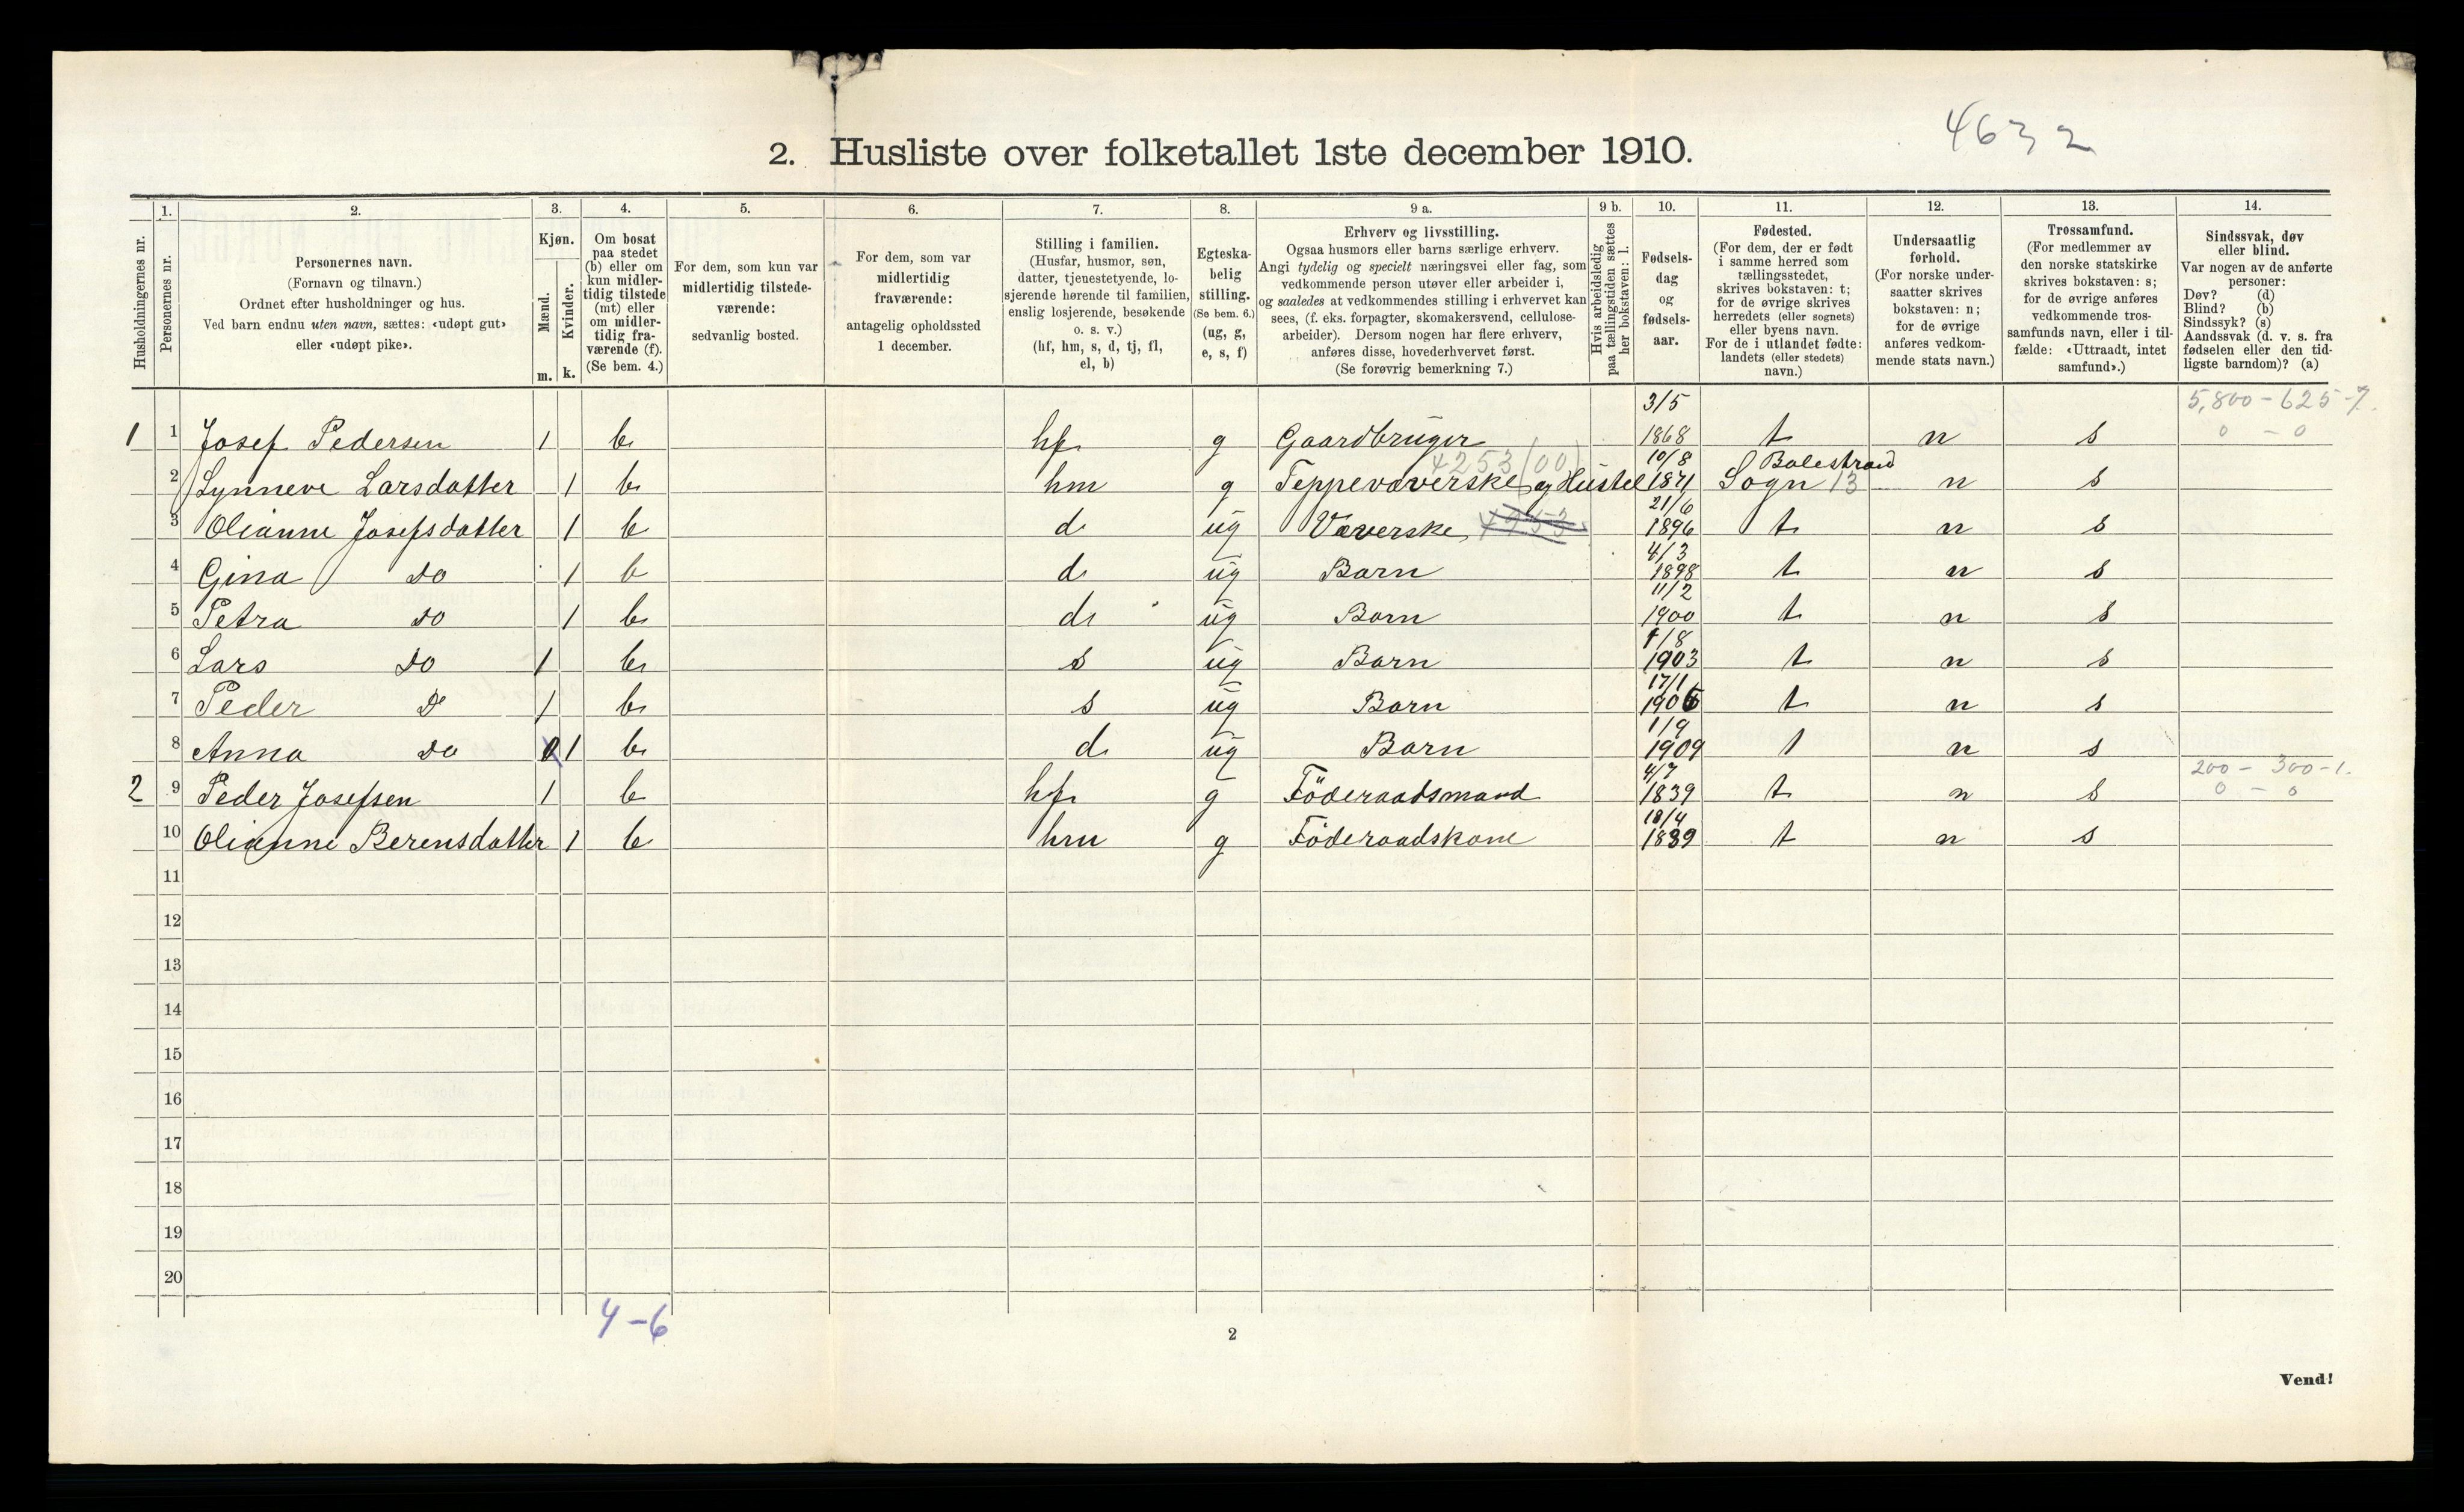 4632
2. Husliste over folketallet 1ste december 1910.
1. 2. 3. 4. 5. 6. 7. 8. 9 a. 9 b. 10. 11. 12. 13. 14.
Husholdningernes nr.
Personernes nr.
Personernes navn.
(Fornavn og tilnavn.)
Ordnet efter husholdninger og hus.
Ved barn endnu uten navn, sættes: «udøpt gut»
eller «udøpt pike».
Kjøn.
Mænd.
Kvinder.
m. k.
Om bosat
paa stedet
(b) eller om
kun midler-
tidig tilstede
(mt) eller
om midler-
tidig fra-
værende (f).
(Se bem. 4.)
For dem, som kun var
midlertidig tilstede-
værende:
sedvanlig bosted.
For dem, som var
midlertidig
fraværende:
antagelig opholdssted
1 december.
Stilling i familien.
(Husfar, husmor, søn,
datter, tjenestetyende, lo-
sjerende hørende til familien,
enslig losjerende, besøkende
o. s. v.)
(hf, hm, s, d, tj, fl,
el, b)
Egteska-
belig
stilling.
(Se bem. 6.)
(ug, g,
e, s, f)
Erhverv og livsstilling.
Ogsaa husmors eller barns særlige erhverv.
Angi tydelig og specielt næringsvei eller fag, som
vedkommende person utøver eller arbeider i,
og saaledes at vedkommendes stilling i erhvervet kan
sees, (f. eks. forpagter, skomakersvend, cellulose-
arbeider). Dersom nogen har flere erhverv,
anføres disse, hovederhvervet først.
(Se forøvrig bemerkning 7.)
Hvis arbeidsledig
paa tællingstiden sættes
her bokstaven: l.
Fødsels-
dag
og
fødsels-
aar.
Fødested.
(For dem, der er født
i samme herred som
tællingsstedet,
skrives bokstaven: t;
for de øvrige skrives
herredets (eller sognets)
eller byens navn.
For de i utlandet fødte:
landets (eller stedets)
navn.)
Undersaatlig
forhold.
(For norske under-
saatter skrives
bokstaven: n;
for de øvrige
anføres vedkom-
mende stats navn.)
Trossamfund.
(For medlemmer av
den norske statskirke
skrives bokstaven: s;
for de øvrige anføres
vedkommende tros-
samfunds navn, eller i til-
fælde: «Uttraadt, intet
samfund».)
Sindssvak, døv
eller blind.
Var nogen av de anførte
personer:
Døv? (d)
Blind? (b)
Sindssyk? (s)
Aandssvak (d. v. s. fra
fødselen eller den tid-
ligste barndom)? (a)
3/5 5,800 - 625 - 7.
1 1 Josef Pedersen 1 b hf g Gaardbruger 1868 t n s 0 - 0
4253 (00) 10/8 Balestrand
2 Synneve Larsdatter 1 b hm g Teppevæverske og Hustel 1871 Sogn 13 n s
21/6
3 Olianne Josefsdatter 1 b d ug Væverske 4253 1896 t n s
4/3
4 Gina do 1 b d ug Barn 1898 t n s
11/2
5 Petra do 1 b d ug Barn 1900 t n s
1/8
6 Lars do 1 b s ug Barn 1903 t n s
17/1
7 Peder do 1 b s ug Barn 1906 t n s
1/9
8 Anna do 1 b d ug Barn 1909 t n s
4/7 200 - 300 - 1.
2 9 Peder Josefsen 1 b hf g Föderaadsmand 1839 t n s 0 - 0
18/4
10 Olianne Berensdatter 1 b hm g Föderaadskone 1839 t n s
11
12
13
14
15
16
17
18
19
20
4-6
2
Vend!